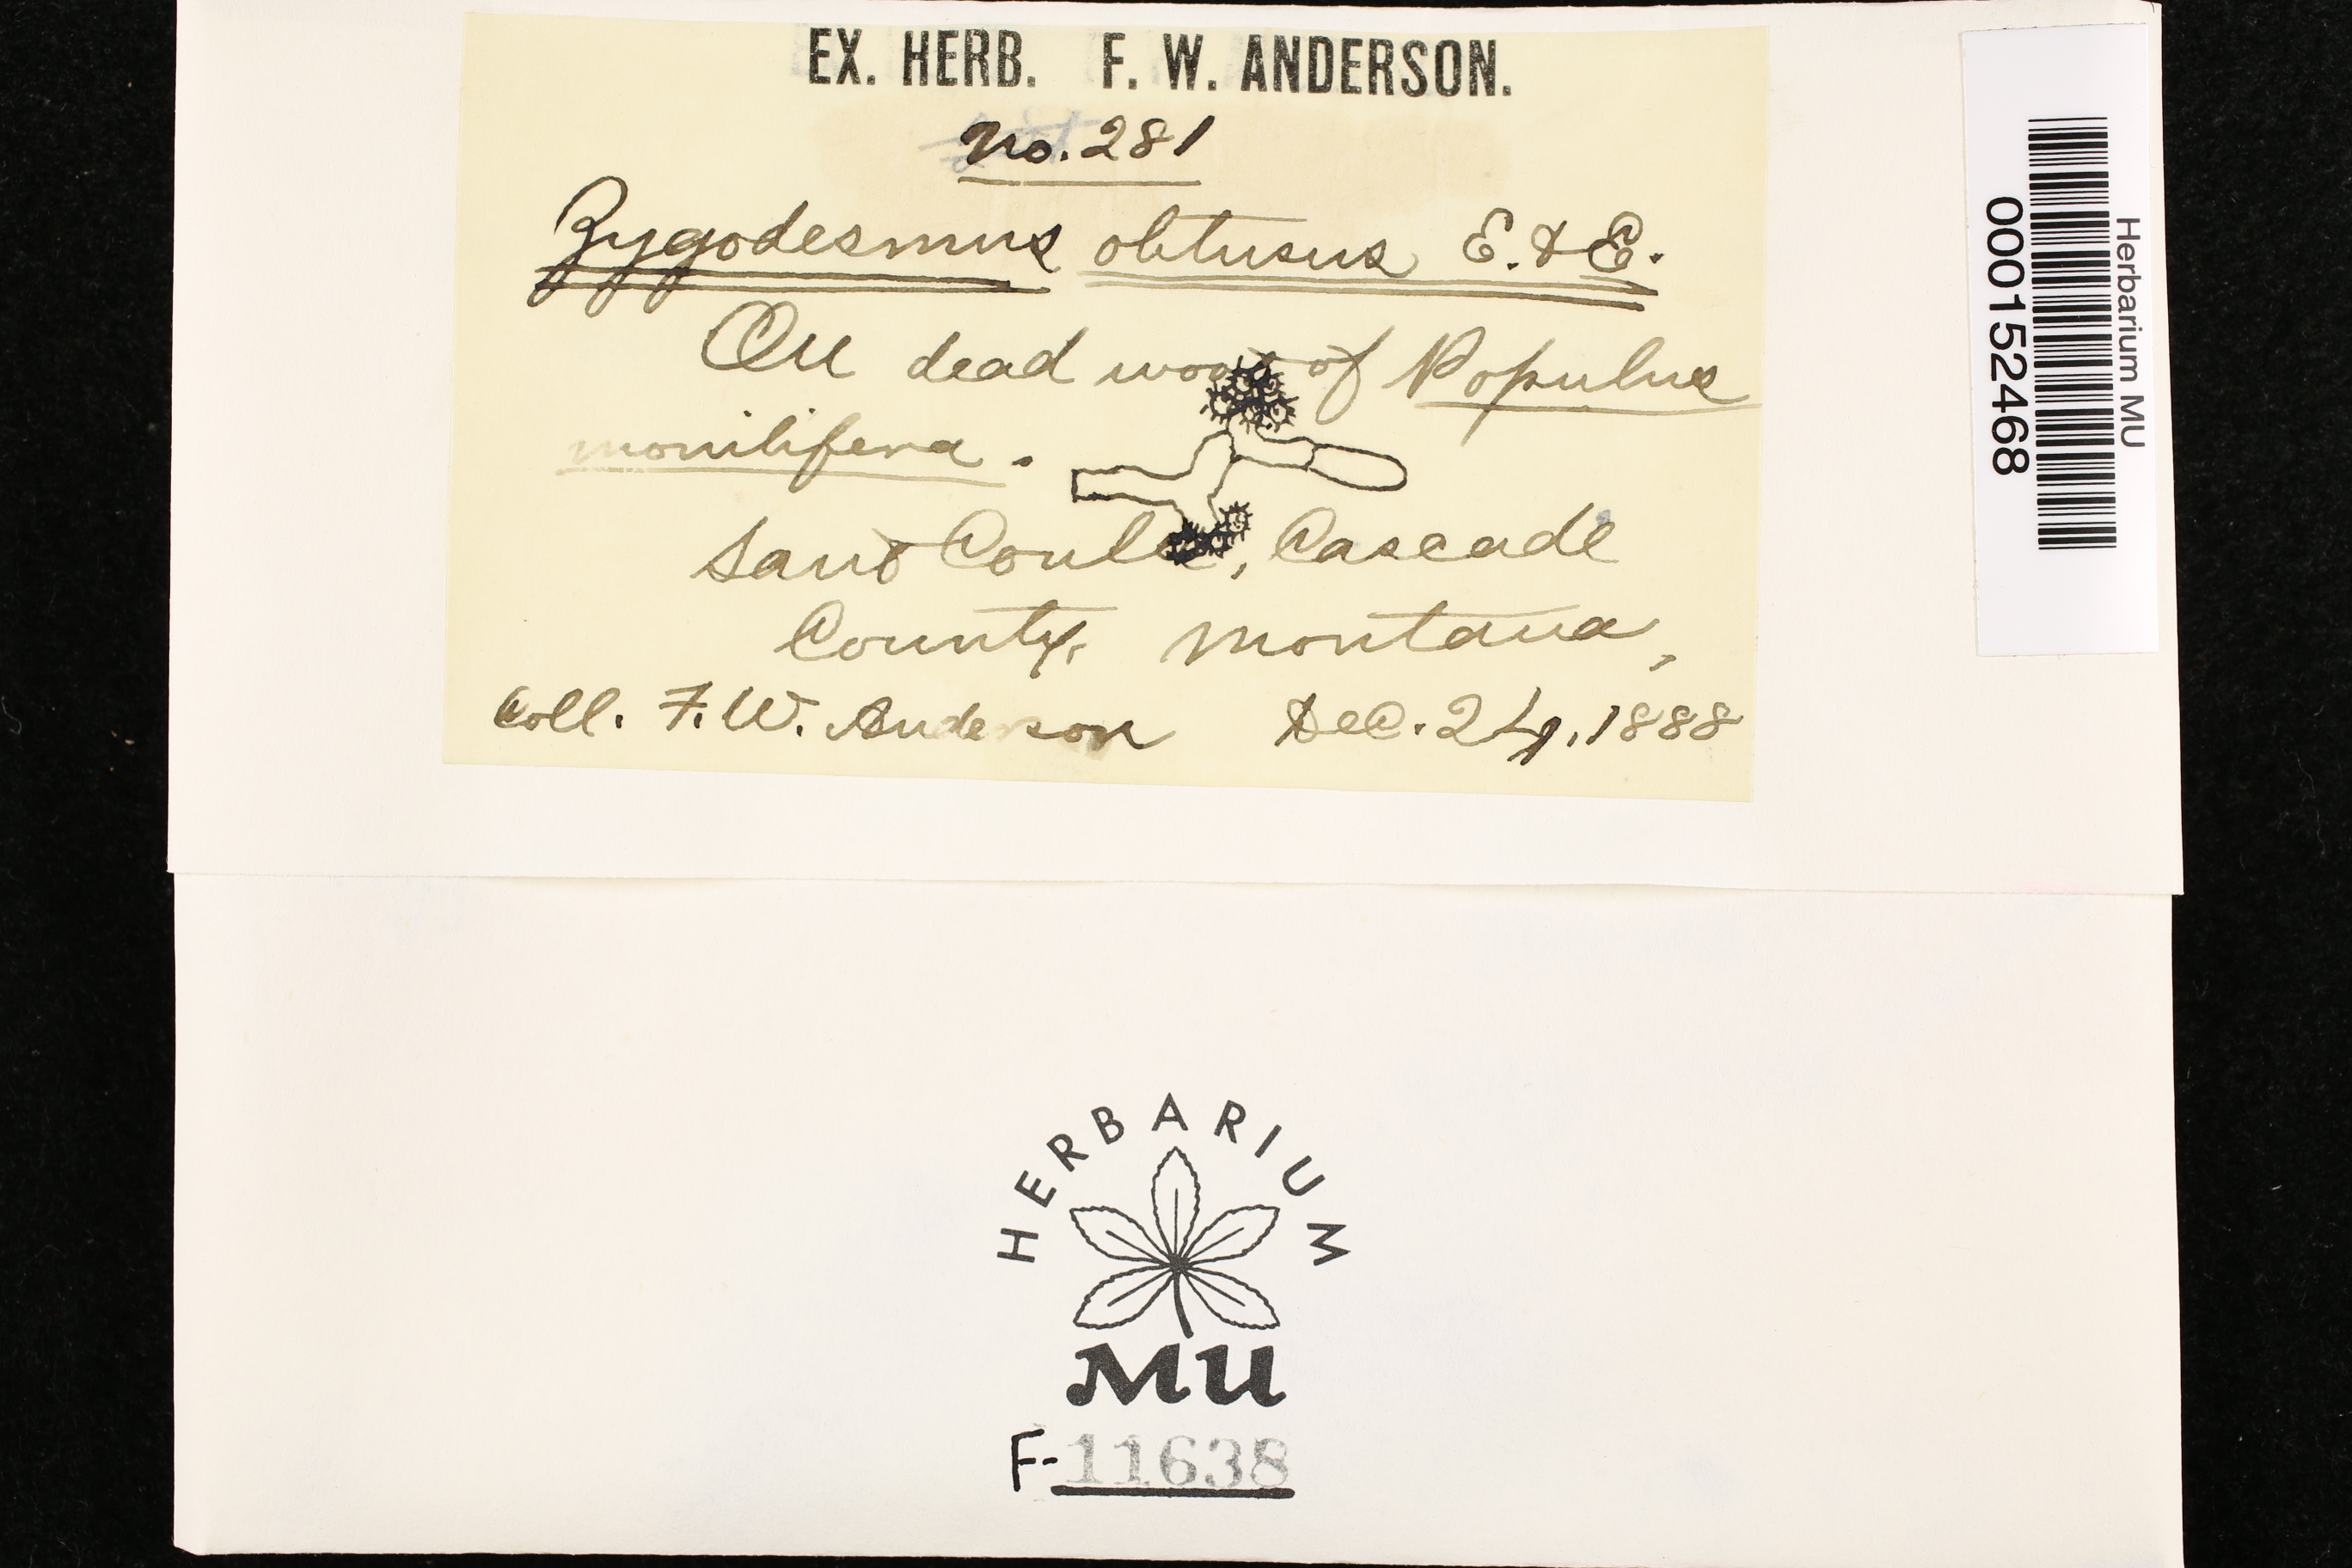 EX. HERB. F. W. ANDERSON.
No. 281
Zygodesmus obtusus E. & E.
On dead wood of Populus
monilifera.
Sand Coulee, Cascade
County, Montana,
Coll. F. W. Anderson Dec. 24, 1888
Herbarium MU
000152468
HERBARIUM
MU
F-11638